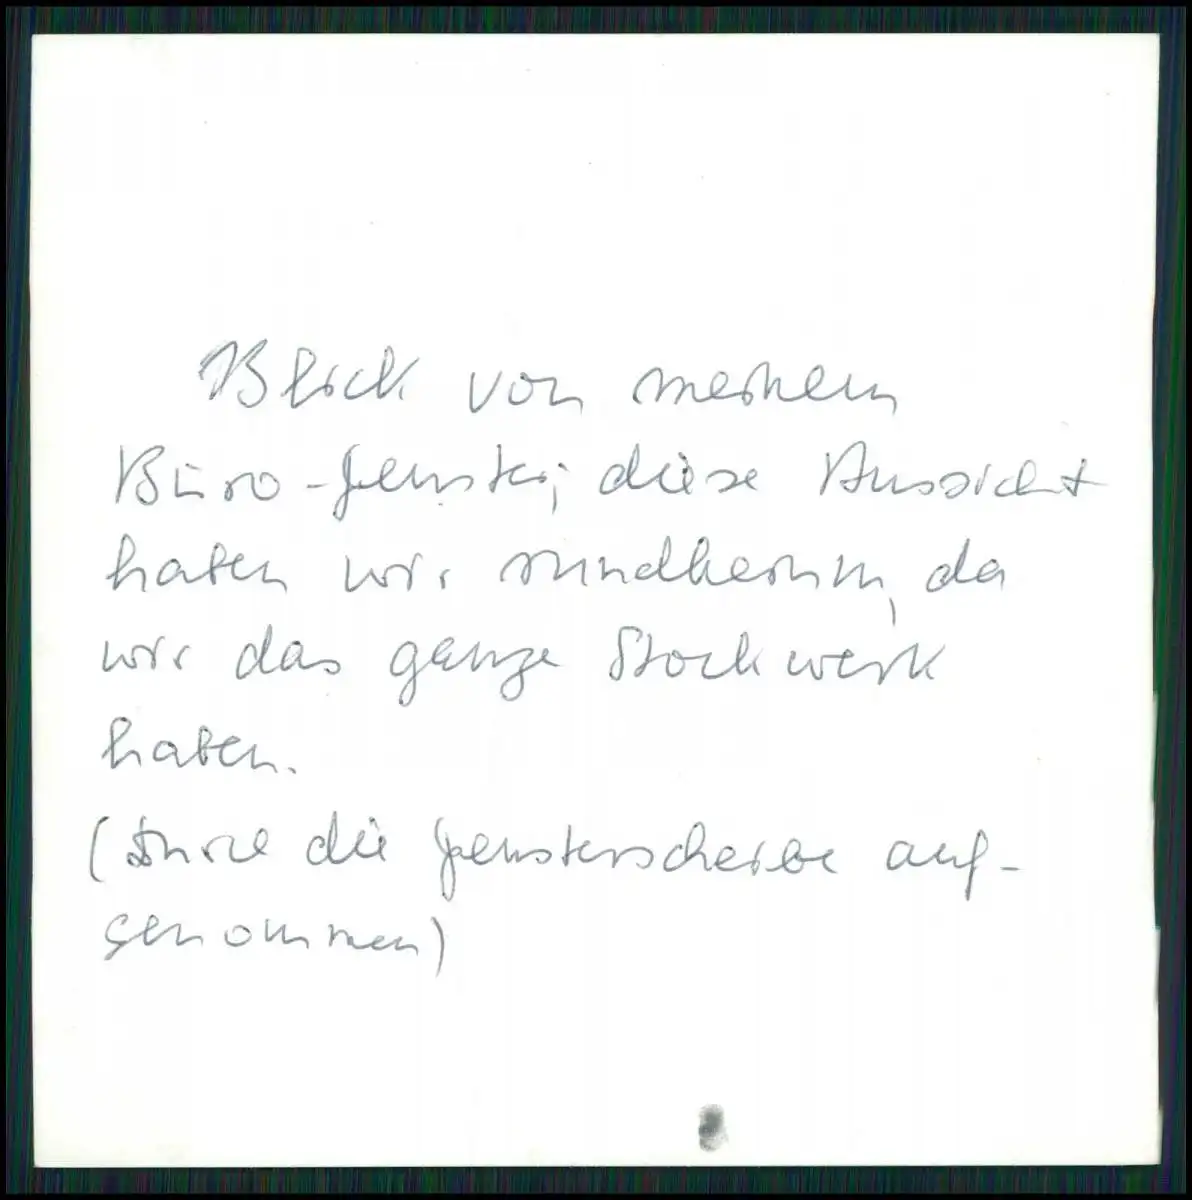 Blick von meinem
Büro-Fenster; diese Aussicht
haben wir rundherum, da
wir das ganze Stockwerk
haben.
(Durch die Fensterscheibe auf-
genommen)